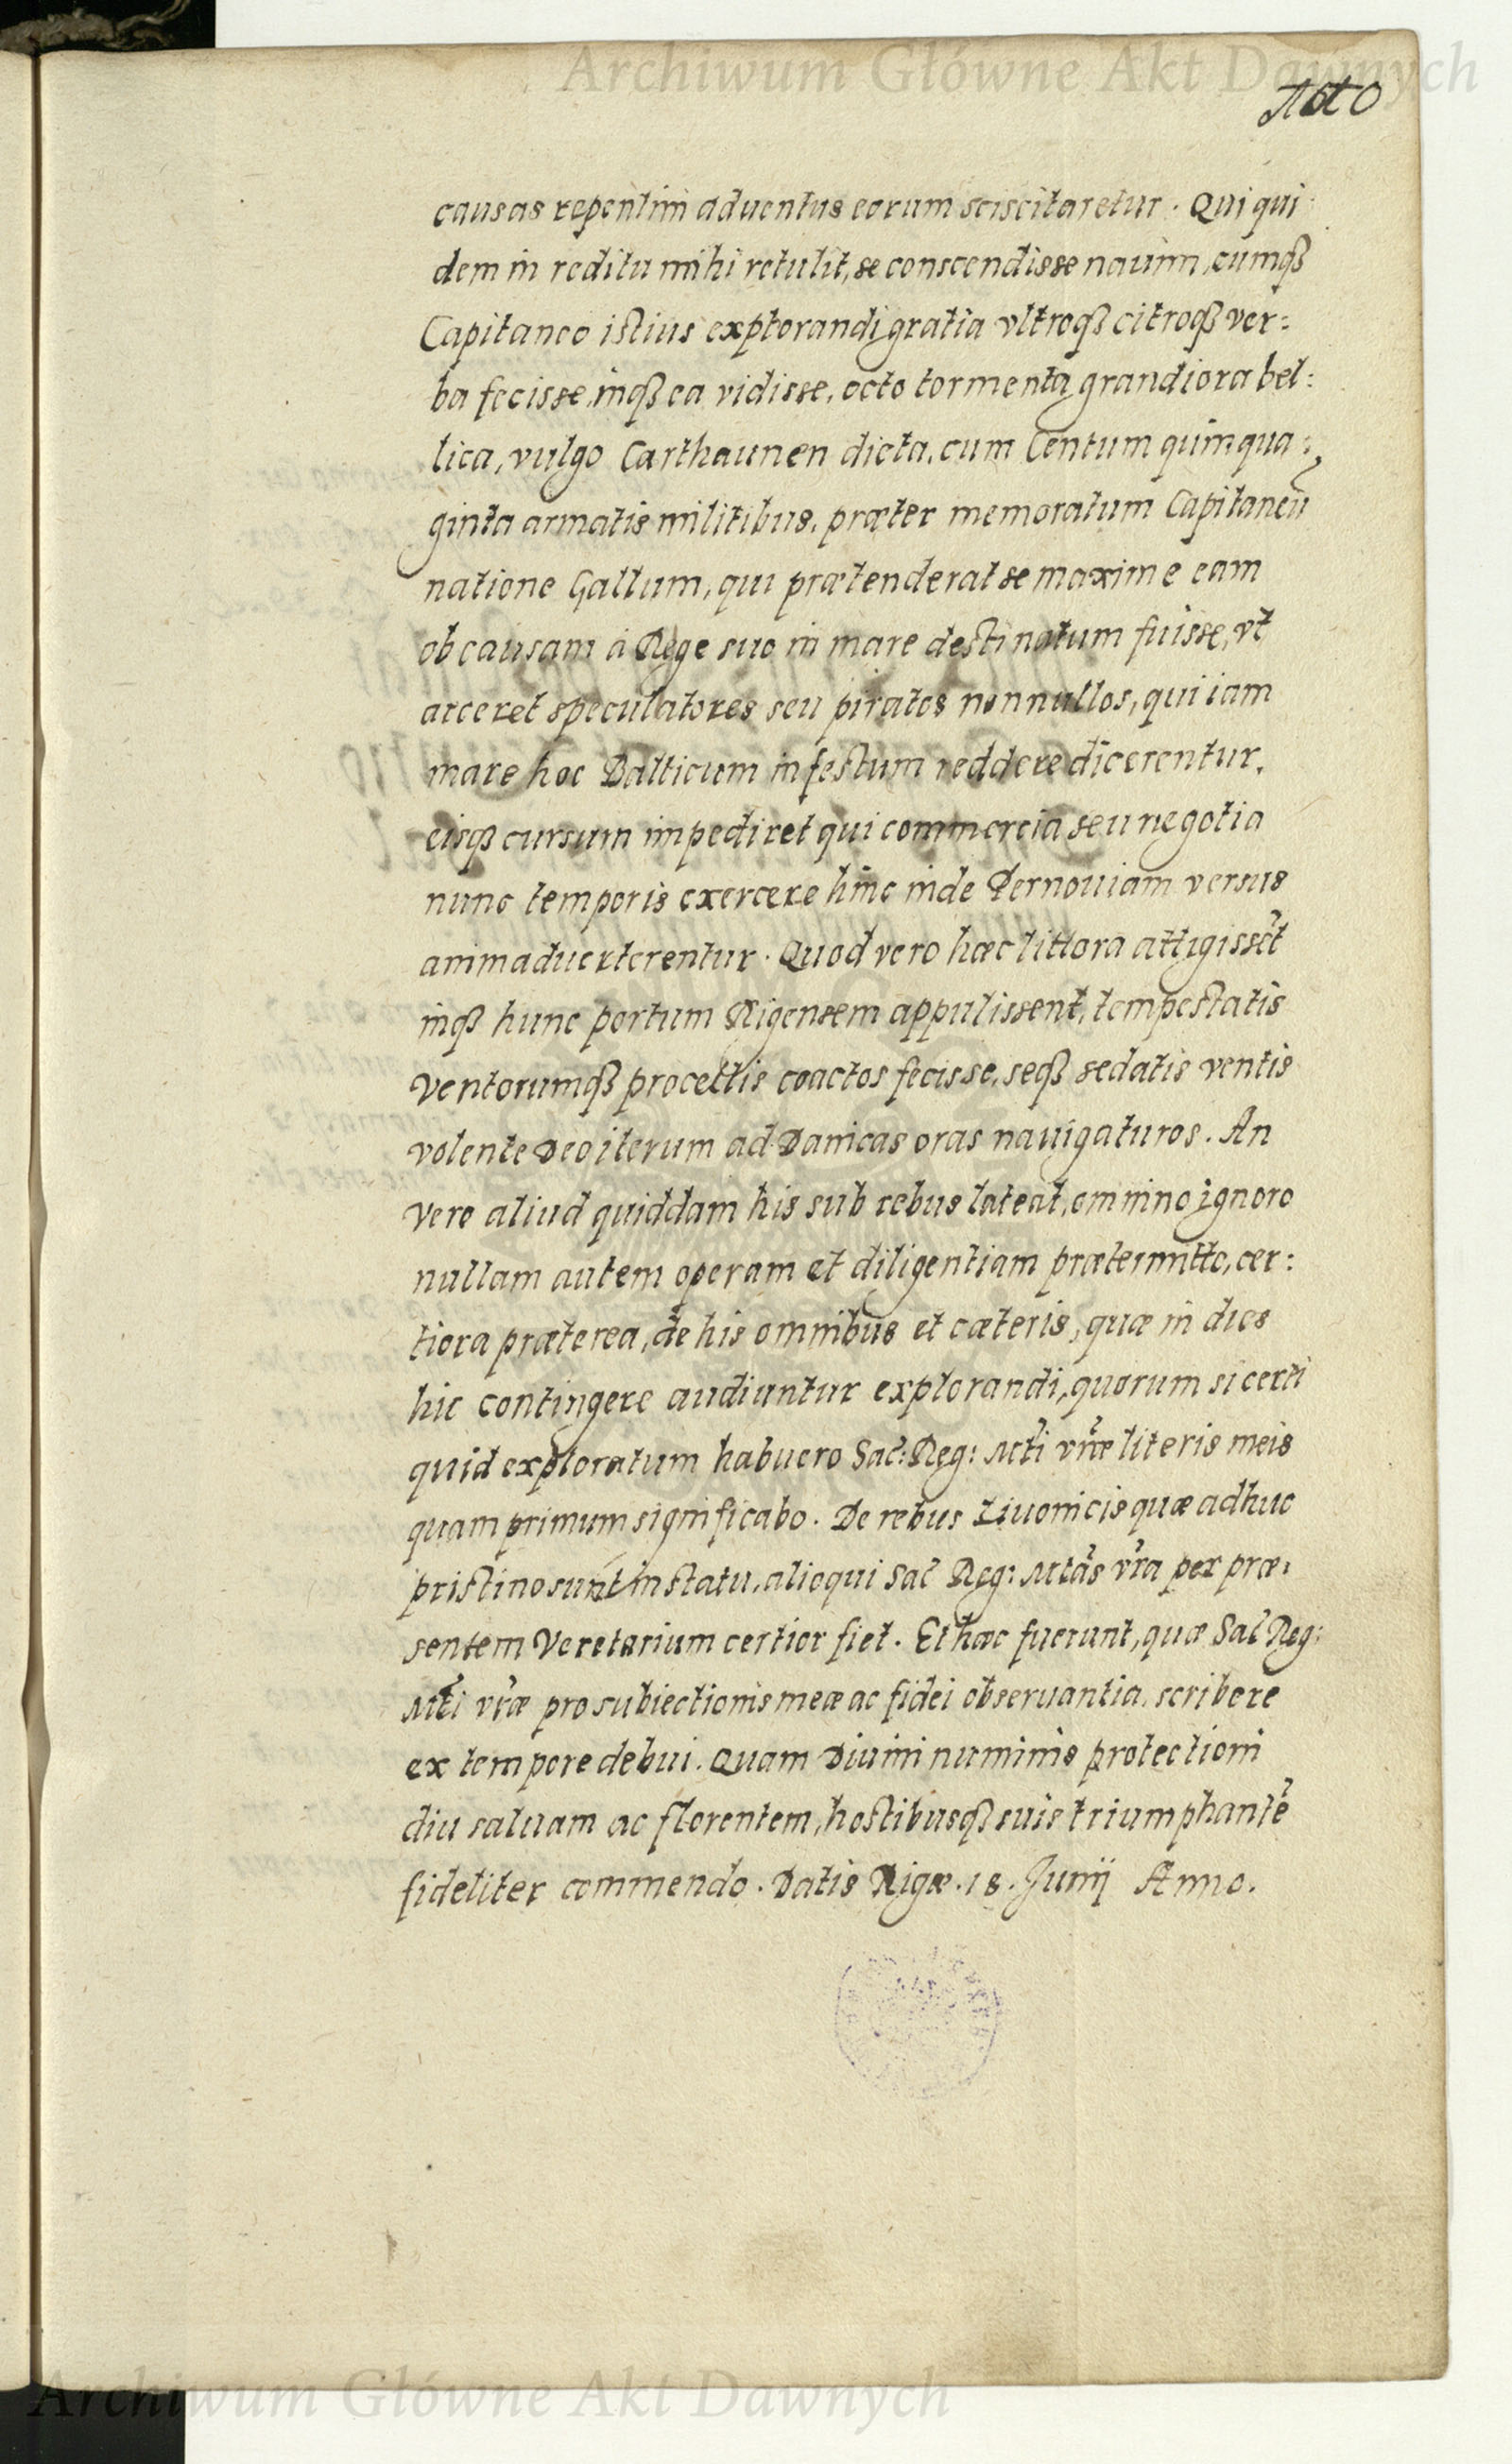 Archiwum Główne Akt Dawnych
causas repentini aduentus eorum sciscitaretur. Qui qui
dem in reditu mihi retulit, se conscendisse nauim, cumqȝ
Capitaneo istius explorandi gratia vltroqȝ citroqȝ ver:
ba fecisse, inqȝ ea vidisse, octo tormenta grandiora bel:
lica, vulgo Carthaunen dicta, cum Centum quinqua:
ginta armatis militibus, præter memoratum Capitaneū
natione Gallum, qui prætenderat se maxime eam
ob causam à Rege suo in mare destinatum fuisse, vt
arceret speculatores seu piratos nonnullos, qui iam
mare hoc Balticum infestum reddere dicerentur,
eisqȝ cursum impediret qui commercia seu negotia
nunc temporis exercere hinc inde Pernouiam versus
animaduerterentur. Quod vero hæc littora attigissēt
inqȝ hunc portum Rigensem appulissent, tempestatis
Ventorumqȝ procellis coactos fecisse, seqȝ sedatis ventis
volente Deo iterum ad Danicas oras nauigaturos. An
vero aliud quiddam his sub rebus lateat, omnino ignoro
nullam autem operam et diligentiam prætermitto, cer:
tiora præterea, de his omnibus et cæteris, quæ in dies
hic contingere audiuntur explorandi, quorum si certi
quid exploratum habuero Sac: Reg: Mtī vræ literis meis
quam primum significabo. De rebus Liuonicis quæ adhuc
pristino sunt in statu, alioqui Sac Reg: Mtās vra per præ:
sentem Veretarium certior fiet. Et hæc fuerunt, quæ Sac Reg:
Mtī vræ pro subiectionis meæ ac fidei obseruantia, scribere
ex tempore debui. Quam Diuini numinis protectioni
diu saluam ac florentem, hostibusqȝ suis triumphantē
fideliter commendo. Datis Rigæ. 18. Junij Anno.
Archiwum Główne Akt Dawnych